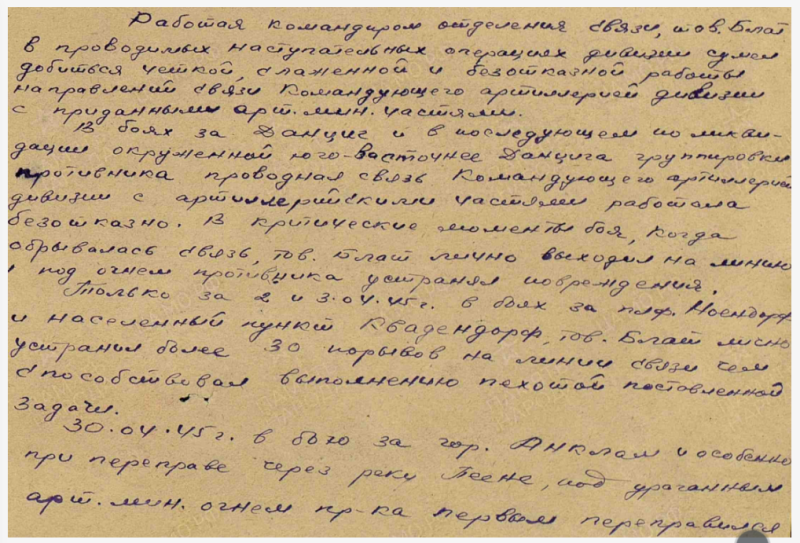 Работая командиром отделения связи, тов. Блат
в проводимых наступательных операциях дивизии сумел
добиться четкой, слаженной и безотказной работы
направлений связи Командующего артиллерией дивизии
с приданными арт. мин. частями.
В боях за Данциг и в последующем по ликви-
дации окруженной юго-восточнее Данцига группировки
противника проводная связь Командующего артиллерией
дивизии с артиллерийскими частями работала
безотказно. В критические моменты боя, когда
обрывалась связь, тов. Блат лично выходил на линию
и под огнем противника устранял повреждения.
Только за 2 и 3.04.45г. в боях за плф. Ноендорф
и населенный пункт Квадендорф, тов. Блат лично
устранил более 30 порывов на линии связи чем
способствовал выполнению пехотой поставленной
задачи.
30.04.45г. в бою за гор. Анклам и особенно
при переправе через реку Пеене, под ураганным
арт. мин. огнем пр-ка первым переправился